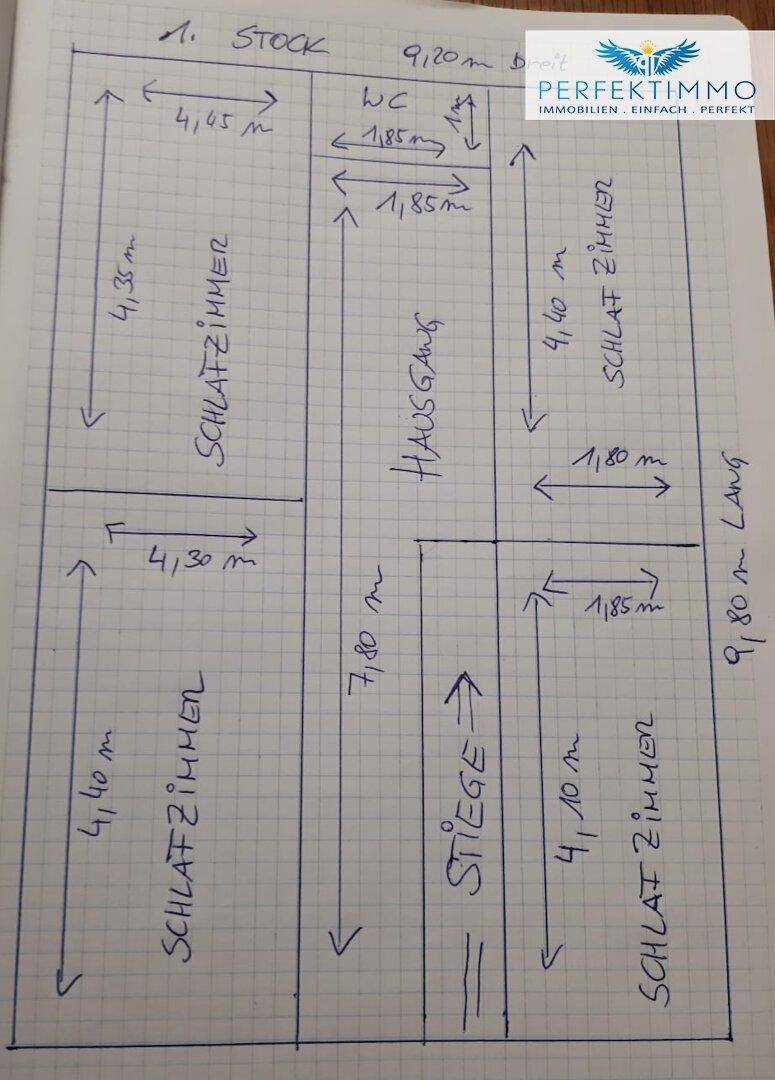 1. STOCK
9,20 m Breit
PERFEKTIMMO
IMMOBILIEN . EINFACH . PERFEKT
4,45 m
4,35 m
SCHLAFZIMMER
WC
1,85 m
1 m
1,85 m
HAUSGANG
7,80 m
4,40 m
SCHLAFZIMMER
1,80 m
9,80 m LANG
4,30 m
4,40 m
SCHLAFZIMMER
STIEGE
1,85 m
4,10 m
SCHLAFZIMMER